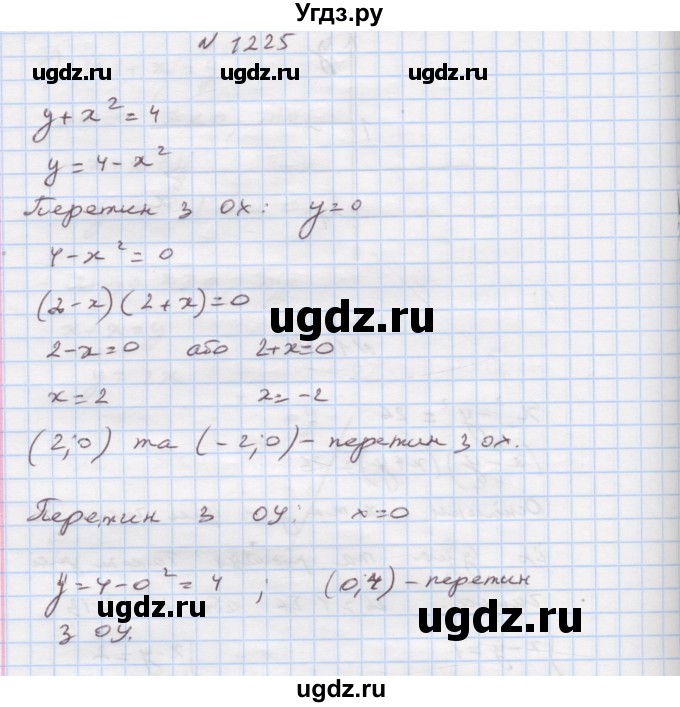 Угдз.ру
N 1225
ugdz.ru ugdz.ru ugdz.ru
y + x² = 4
y = 4 - x²
Перетин з OX: y = 0
4 - x² = 0
(2 - x)(2 + x) = 0
ugdz.ru
2 - x = 0 або 2 + x = 0
x = 2 x = -2
(2; 0) та (-2; 0) - перетин з OX.
Перетин з OY: x = 0
y = 4 - 0² = 4 ; (0; 4) - перетин
ugdz.ru ugdz.ru
з OY.
ugdz.ru
ugdz.ru